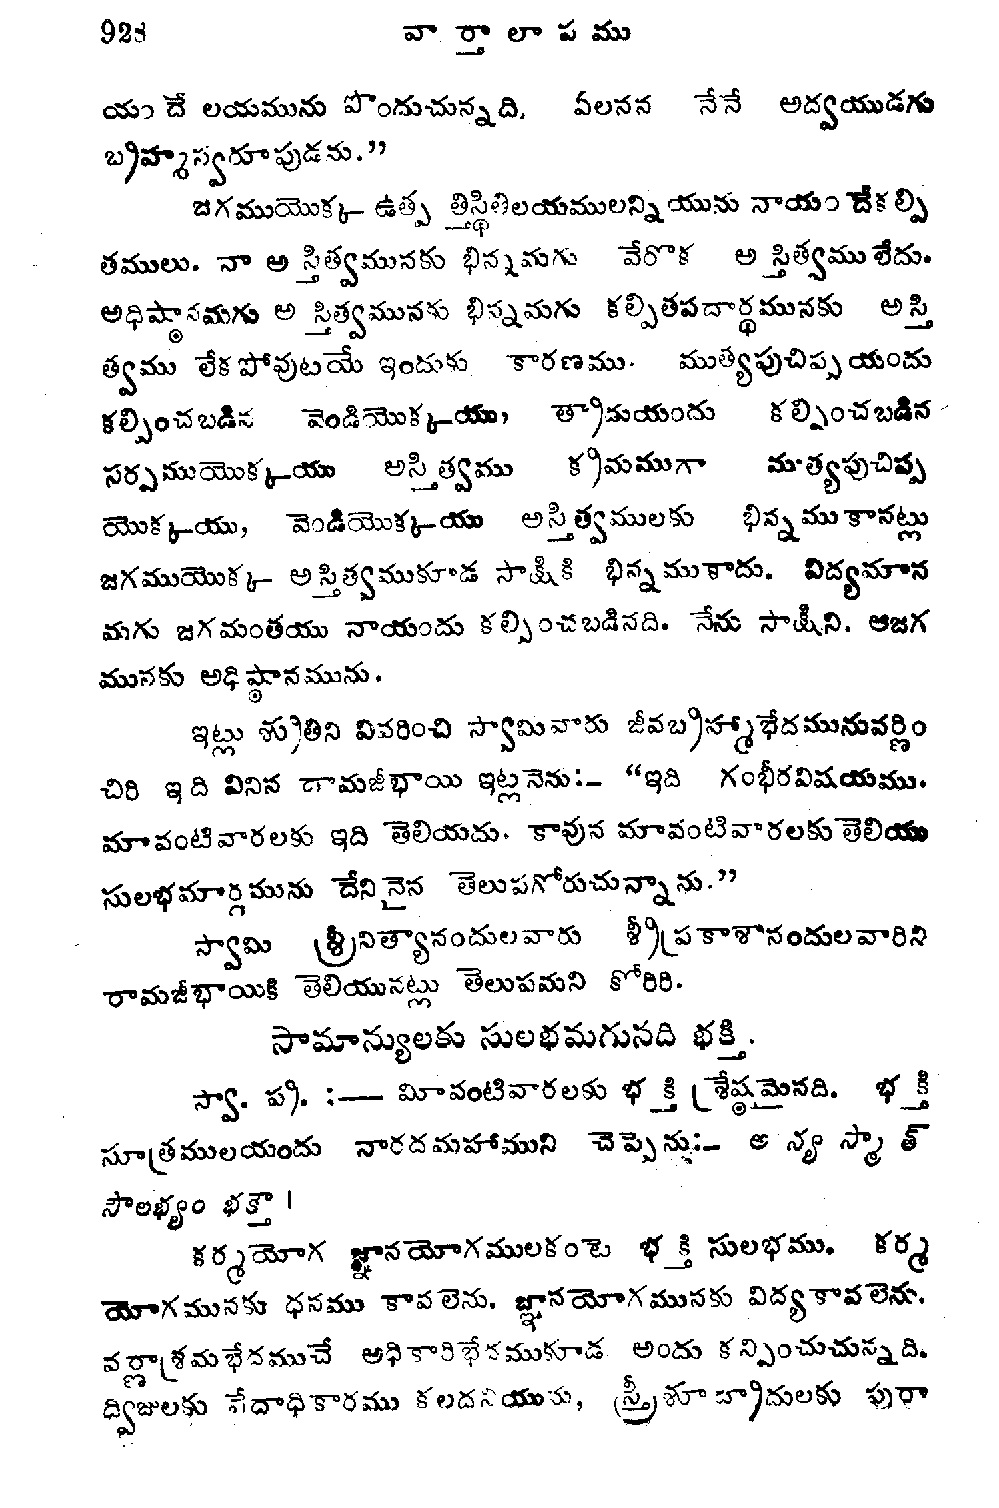 928 వార్తాలాపము
యందే లయమును పొందుచున్నది. ఏలనన నేనే అద్వయుడగు
బ్రహ్మస్వరూపుడను.”
జగముయొక్క ఉత్పత్తిస్థితిలయములన్నియును నాయందేకల్పి
తములు. నా అస్తిత్వమునకు భిన్నమగు వేరొక అస్తిత్వములేదు.
అధిష్ఠానమగు అస్తిత్వమునకు భిన్నమగు కల్పితపదార్థమునకు అస్తి
త్వము లేకపోవుటయే ఇందుకు కారణము. ముత్యపుచిప్పయందు
కల్పించబడిన వెండియొక్కయు, త్రాడుయందు కల్పించబడిన
సర్పముయొక్కయు అస్తిత్వము క్రమముగా ముత్యపుచిప్ప
యొక్కయు, వెండియొక్కయు అస్తిత్వములకు భిన్నముకానట్లు
జగముయొక్క అస్తిత్వముకూడ సాక్షికి భిన్నముకాదు. విద్యమాన
మగు జగమంతయు నాయందు కల్పించబడినది. నేను సాక్షిని. ఆజగ
మునకు అధిష్ఠానమును.
ఇట్లు శ్రుతిని వివరించి స్వామివారు జీవబ్రహ్మాభేదమునువర్ణిం
చిరి ఇది వినిన రామజీభాయి ఇట్లనెను:– “ఇది గంభీరవిషయము.
మావంటివారలకు ఇది తెలియదు. కావున మావంటివారలకుతెలియు
సులభమార్గమును దేనినైన తెలుపగోరుచున్నాను.”
స్వామి శ్రీనిత్యానందులవారు శ్రీప్రకాశానందులవారిని
రామజీభాయికి తెలియునట్లు తెలుపమని కోరిరి.
సామాన్యులకు సులభమగునది భక్తి.
స్వా. ప్ర. :— మీవంటివారలకు భక్తి శ్రేష్ఠమైనది. భక్తి
సూత్రములయందు నారదమహాముని చెప్పెను:– అన్యస్మాత్
సౌలభ్యం భక్తౌ ।
కర్మయోగ జ్ఞానయోగములకంటె భక్తి సులభము. కర్మ
యోగమునకు ధనము కావలెను. జ్ఞానయోగమునకు విద్యకావలెను.
వర్ణాశ్రమభేదముచే అధికారిభేదముకూడ అందు కన్పించుచున్నది.
ద్విజులకు వేదాధికారము కలదనియును, స్త్రీశూద్రాదులకు పురా